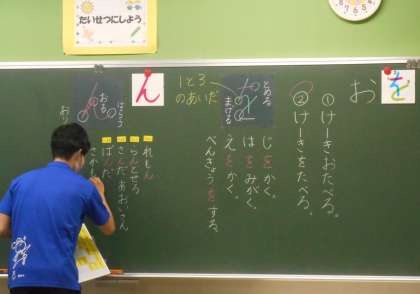 たいせつにしよう
お
を
①けーきおたべる。
②けーきをたべる。
とめる
まげる
じをかく。
はをみがく。
えをかく。
べんきょうをする。
1と3
のあいだ
ん
はらう
おる
おり
れもん
らんどせる
さんだあおいさん
ぱんだ